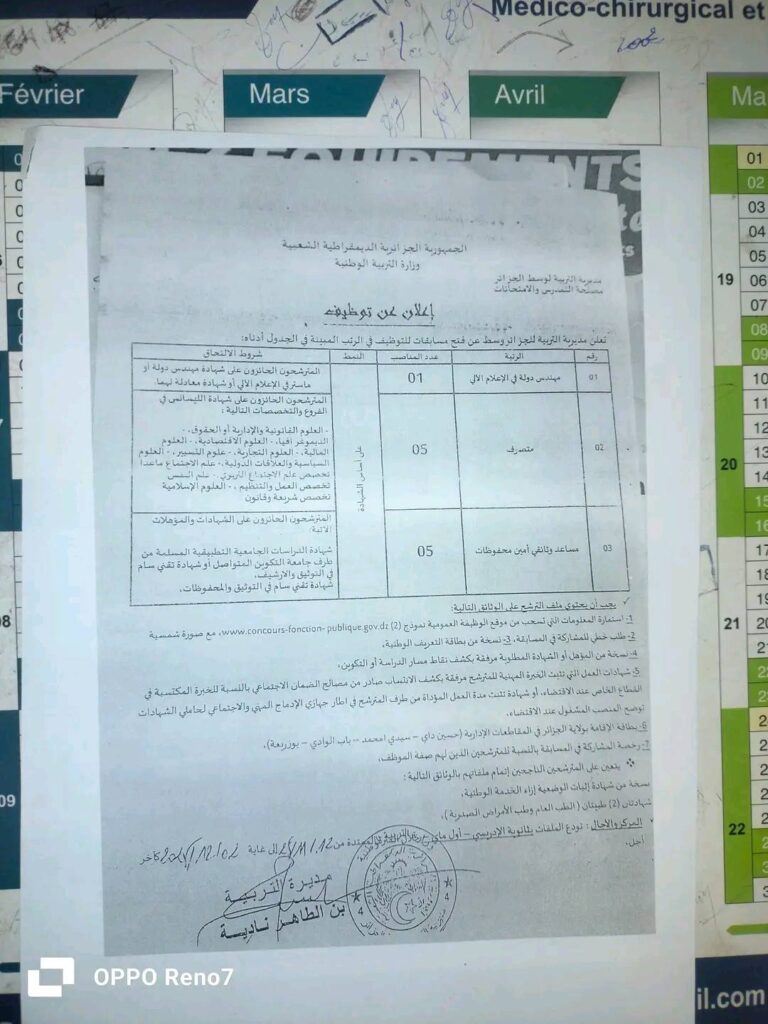 Medico-chirurgical et
Février
Mars
Avril
Ma
EQUIPEMENTS
الجمهورية الجزائرية الديمقراطية الشعبية
وزارة التربية الوطنية
مديرية التربية لوسط الجزائر
مصلحة التمدرس والامتحانات
إعلان عن توظيف
تعلن مديرية التربية للجزائر وسط عن فتح مسابقات للتوظيف في الرتب المبينة في الجدول أدناه:
رقم الرتبة عدد المناصب النمط شروط الالتحاق
01 مهندس دولة في الإعلام الآلي 01
المترشحون الحائزون على شهادة مهندس دولة أو
ماستر في الإعلام الآلي أو شهادة معادلة لهما
02 متصرف 05
على أساس الشهادة
المترشحون الحائزون على شهادة الليسانس في
الفروع والتخصصات التالية:
- العلوم القانونية والإدارية أو الحقوق، -
الديموغرافيا، - العلوم الاقتصادية، - العلوم
المالية، - العلوم التجارية، - علوم التسيير، - العلوم
السياسية والعلاقات الدولية، - علم الاجتماع ماعدا
تخصص علم الاجتماع التربوي، - علم النفس
تخصص العمل والتنظيم، - العلوم الإسلامية
تخصص شريعة وقانون
03 مساعد وثائقي أمين محفوظات 05
المترشحون الحائزون على الشهادات والمؤهلات
الآتية:
شهادة الدراسات الجامعية التطبيقية المسلمة من
طرف جامعة التكوين المتواصل أو شهادة تقني سام
في التوثيق والأرشيف.
شهادة تقني سام في التوثيق والمحفوظات.
✓ يجب أن يحتوي ملف الترشح على الوثائق التالية:
1- استمارة المعلومات التي تسحب من موقع الوظيفة العمومية نموذج (2) www.concours-fonction- publique.gov.dz، مع صورة شمسية
2- طلب خطي للمشاركة في المسابقة، 3- نسخة من بطاقة التعريف الوطنية،
4- نسخة من المؤهل أو الشهادة المطلوبة مرفقة بكشف نقاط مسار الدراسة أو التكوين.
5- شهادات العمل التي تثبت الخبرة المهنية للمترشح مرفقة بكشف الانتساب صادر من مصالح الضمان الاجتماعي بالنسبة للخبرة المكتسبة في
القطاع الخاص عند الاقتضاء، أو شهادة تثبت مدة العمل المؤداة من طرف المترشح في اطار جهازي الإدماج المهني والاجتماعي لحاملي الشهادات
توضح المنصب المشغول عند الاقتضاء.
6- بطاقة الإقامة بولاية الجزائر في المقاطعات الإدارية (حسين داي – سيدي امحمد – باب الوادي – بوزريعة).
7- رخصة المشاركة في المسابقة بالنسبة للمترشحين الذين لهم صفة الموظف.
❖ يتعين على المترشحين الناجحين إتمام ملفاتهم بالوثائق التالية:
نسخة من شهادة إثبات الوضعية إزاء الخدمة الوطنية.
شهادتان (2) طبيتان ( الطب العام وطب الأمراض الصدرية).
✓ المركز والآجال: تودع الملفات بثانوية الإدريسي – أول ماي إلى غاية كآخر
أجل.
مديرة التربية
بن الطاهر نادية
19
20
21
22
08
09
01
02
03
04
05
06
07
08
09
10
11
12
13
14
15
16
il.com
OPPO Reno7